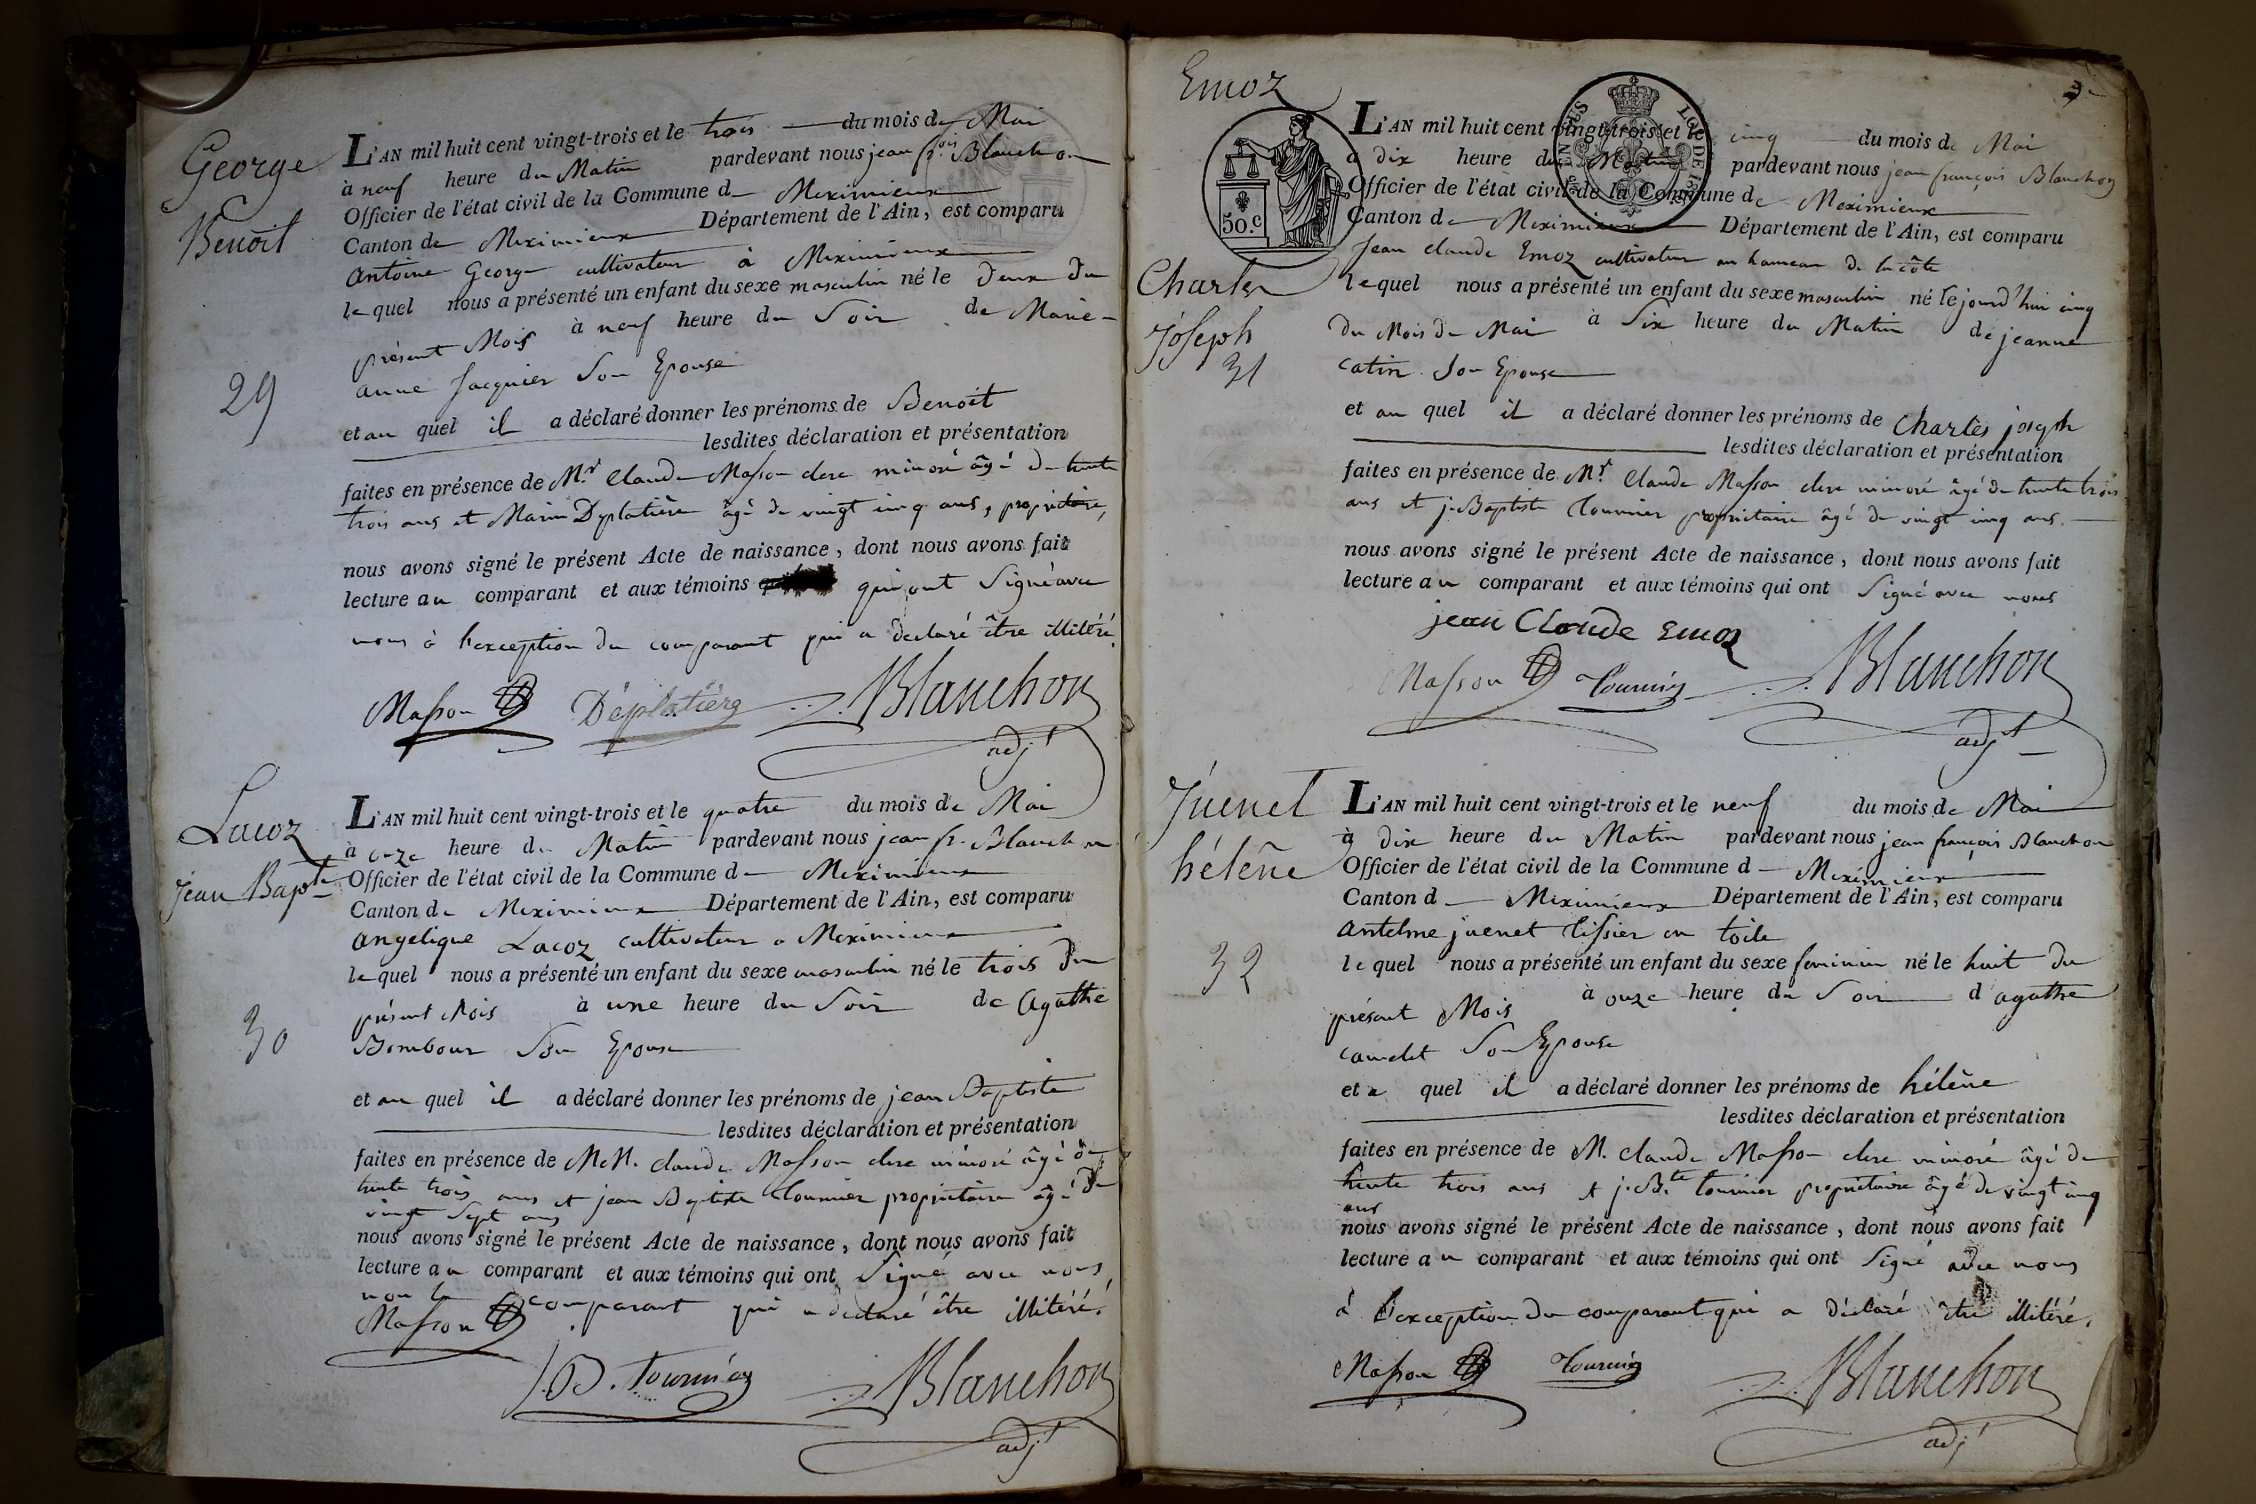 George
Benoit
29
L'AN mil huit cent vingt-trois et le trois du mois de Mai
à neuf heure du Matin pardevant nous jean f.ois Blanchon
Officier de l'état civil de la Commune de Meximieux
Canton de Meximieux Département de l'Ain, est comparu
antoine George cultivateur à Meximieux
le quel nous a présenté un enfant du sexe masculin né le deux du
présent Mois à neuf heure du Soir de Marie
anne Jacquier Son Epouse
et au quel il a déclaré donner les prénoms de Benoit
lesdites déclaration et présentation
faites en présence de Mr. Claude Masson clerc minoré âgé de trente
trois ans et Marin Déplatière âgé de vingt cinq ans, propriétaire,
nous avons signé le présent Acte de naissance, dont nous avons fait
lecture au comparant et aux témoins qui ont Signé avec
nous à l'exception du comparant qui a declaré être illitéré.
Masson Déplatière Blanchon
adjt
Lacoz
jean Bapte
30
L'AN mil huit cent vingt-trois et le quatre du mois de Mai
à onze heure du Matin pardevant nous jean fr. Blanchon
Officier de l'état civil de la Commune de Meximieux
Canton de Meximieux Département de l'Ain, est comparu
angelique Lacoz cultivateur a Meximieux
le quel nous a présenté un enfant du sexe masculin né le trois du
présent Mois à une heure du Soir de Agathe
Bombour Son Epouse
et au quel il a déclaré donner les prénoms de jean Baptiste
lesdites déclaration et présentation
faites en présence de MM. claude Masson clerc minoré âgé de
trente trois ans et jean Baptiste Tournier propriétaire âgé de
vingt Sept ans
nous avons signé le présent Acte de naissance, dont nous avons fait
lecture au comparant et aux témoins qui ont Signé avec nous
non le comparant qui a déclaré être illitéré.
Masson
J.B. Tournier Blanchon
adjt
Emoz
Charles
Joseph
31
50.c
L'AN mil huit cent vingt-trois et le cinq du mois de Mai
à dix heure du Matin pardevant nous jean françois Blanchon
Officier de l'état civil de la Commune de Meximieux
Canton de Meximieux Département de l'Ain, est comparu
Jean claude Emoz cultivateur au hameau de la côte
le quel nous a présenté un enfant du sexe masculin né le jourd'hui cinq
du Mois de Mai à Six heure du Matin de jeanne
catin Son Epouse
et au quel il a déclaré donner les prénoms de Charles joseph
lesdites déclaration et présentation
faites en présence de Mr. Claude Masson clerc minoré âgé de trente trois
ans et j. Baptiste Tournier propriétaire âgé de vingt cinq ans.
nous avons signé le présent Acte de naissance, dont nous avons fait
lecture au comparant et aux témoins qui ont Signé avec nous
jean Claude Emoz
Masson Tournier Blanchon
adjt
Juenet
hélène
32
L'AN mil huit cent vingt-trois et le neuf du mois de Mai
à dix heure du Matin pardevant nous jean françois Blanchon
Officier de l'état civil de la Commune de Meximieux
Canton de Meximieux Département de l'Ain, est comparu
antelme juenet tissier en toile
le quel nous a présenté un enfant du sexe feminin né le huit du
présent Mois à onze heure du Soir d'agathe
camelet Son Epouse
et a quel il a déclaré donner les prénoms de hélène
lesdites déclaration et présentation
faites en présence de M. claude Masson clerc minoré âgé de
trente trois ans et j. Bte tournier propriétaire âgé de vingt cinq
ans
nous avons signé le présent Acte de naissance, dont nous avons fait
lecture au comparant et aux témoins qui ont Signé avec nous
à l'exception du comparant qui a déclaré être illitéré.
Masson Tournier Blanchon
adjt